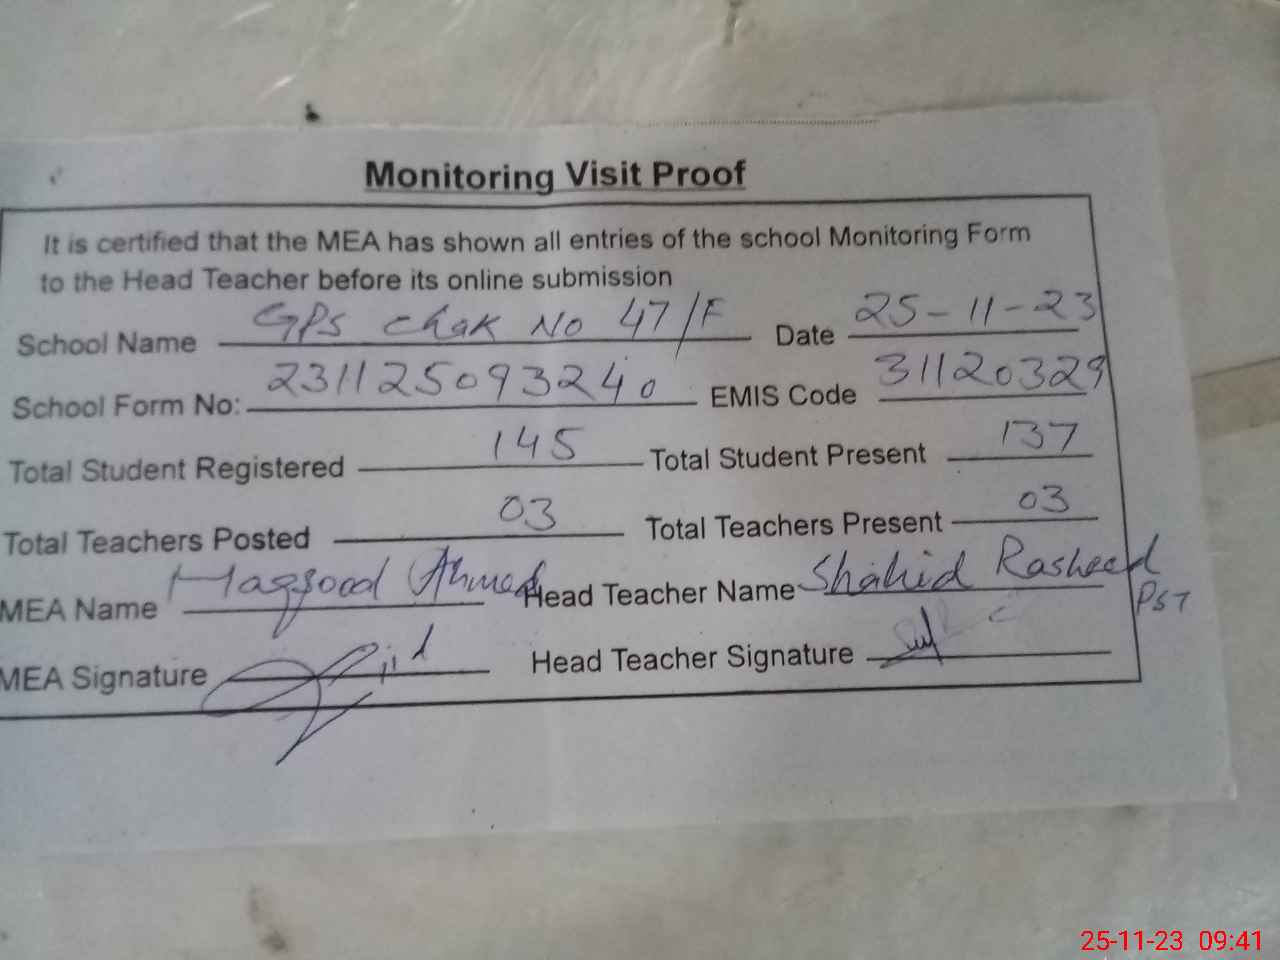 Monitoring Visit Proof
It is certified that the MEA has shown all entries of the school Monitoring Form
to the Head Teacher before its online submission
School Name GPS Chak No 47/F Date 25-11-23
School Form No: 231125093240 EMIS Code 31120329
Total Student Registered 145 Total Student Present 137
Total Teachers Posted 03 Total Teachers Present 03
MEA Name Maqsood Ahmed Head Teacher Name Shahid Rasheed
PST
MEA Signature Head Teacher Signature
25-11-23 09:41